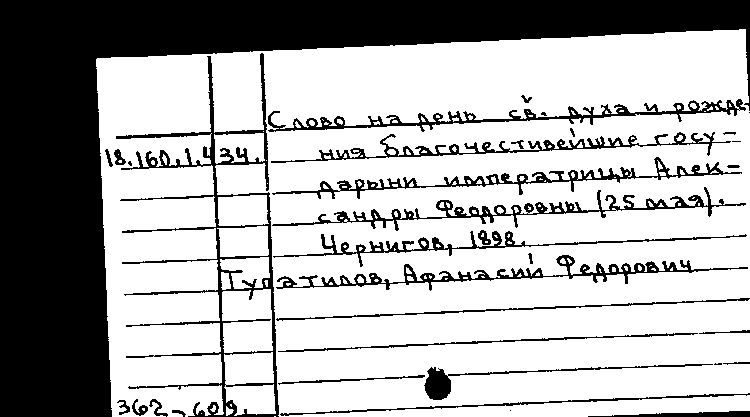 Слово на день св. духа и рожде-
18.160.1.434. ния благочестивейшие госу-
дарыни императрицы Алек-
сандры Феодоровны (25 мая).
Чернигов, 1898.
Тупатилов, Афанасий Федорович
362-609.